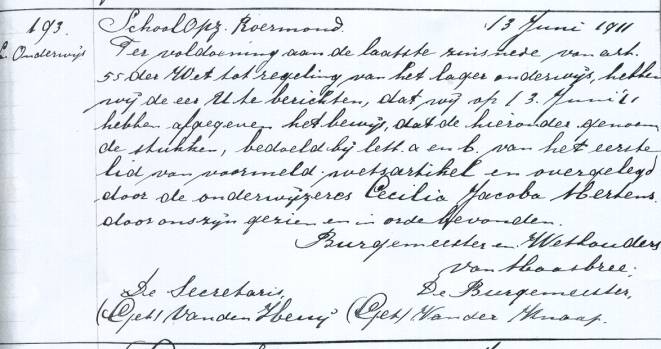 193. SchoolOpz. Roermond. 13 Juni 1911
L. Onderwijs Ter voldoening aan de laatste zinsnede van art.
55 der Wet tot regeling van het lager onderwijs, hebben
wij de eer U te berichten, dat wij op 13 Juni '11
hebben afgegeven het bewijs, dat de hieronder genoem
de stukken, bedoeld bij lett. a en b. van het eerste
lid van voormeld wetsartikel en overgelegd
door de onderwijzeres Cecilia Jacoba Mertens.
door ons zijn gezien en in orde bevonden.
Burgemeester en Wethouders
van Maasbree.
De Secretaris, De Burgemeester,
(Get) Van den (Get) Van der